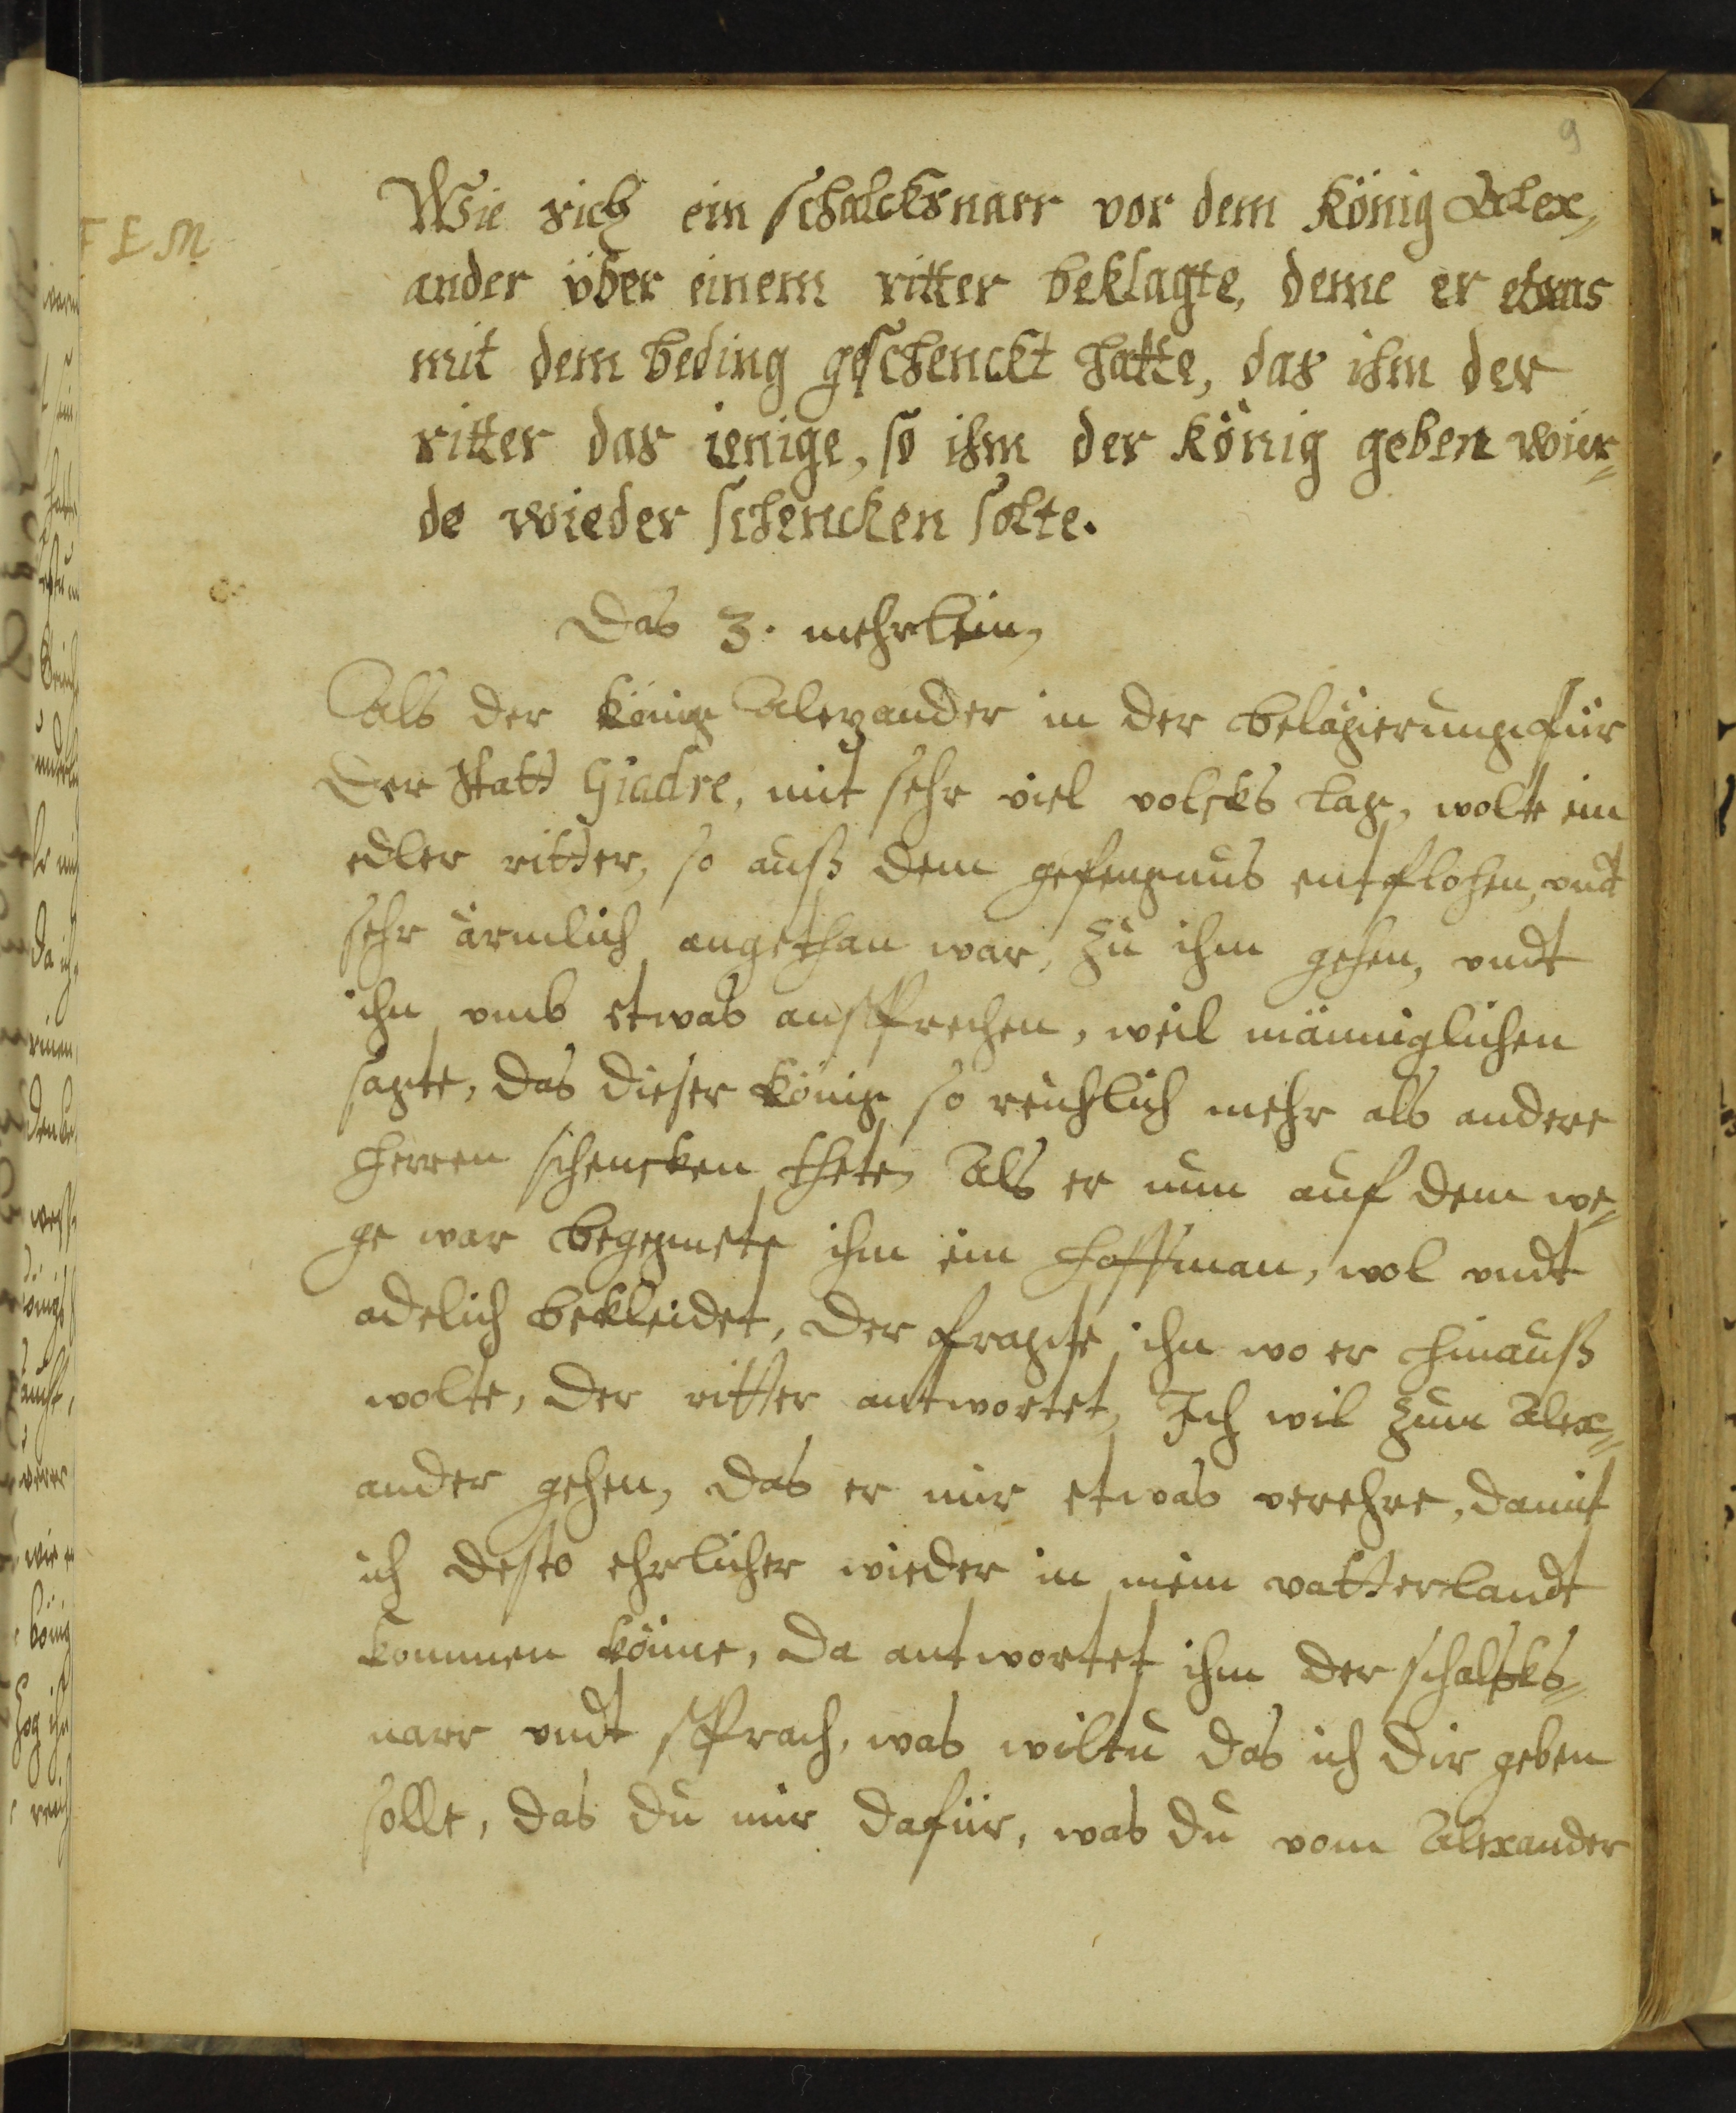 9
F E M
Wie sich ein schalcksnarr vor dem König Alex„
ander über einem ritter beklagte, deme er etwas
mit dem beding geschenckt hatte, das ihm der
ritter das ienige, so ihm der König geben wier„
de wieder schencken solte.
Das 3. mehrlein,
Als der könig Alexander in der belägerung für
der statt Giadre, mit sehr viel volcks lag, wolte ein
edler ritter, so auß dem gefengnus entflohen, undt
sehr ärmlich angethan war, zu ihm gehen, undt
ihn umb etwas ansprechen, weil männiglichen
sagte, das dieser könig so reichlich mehr als andere
herren schencken thete, Als er nun auf dem we„
ge war begegnete ihm ein hoffman, wol undt
adelich bekleidet, der fragte ihn wo er hinauß
wolte, der ritter antwortet, Ich wil zum Alex„
ander gehen, das er mir etwas verehre, damit
ich desto ehrlicher wieder in mein vatterlandt
kommen könne, da antwortet ihm der schalcks„
narr undt sprach, was wiltu das ich dir geben
solle, das du mir dafür, was du vom Alexander